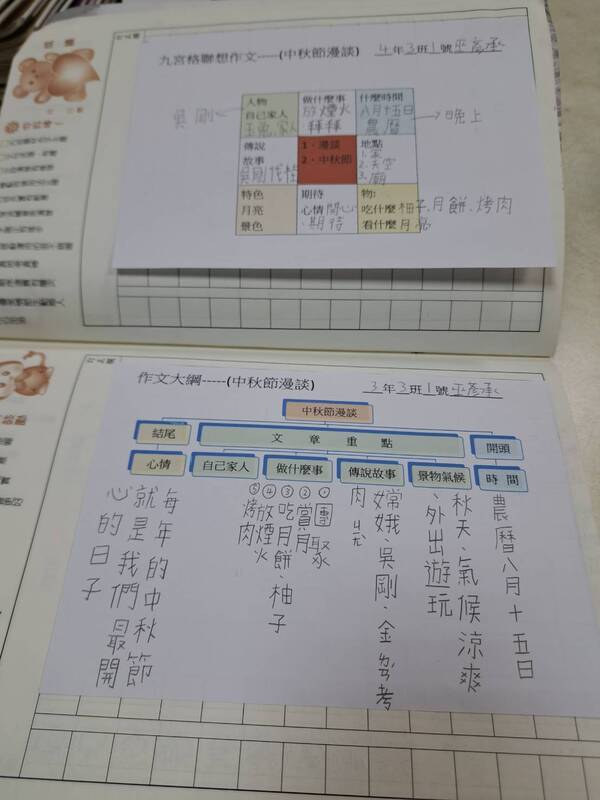 九宮格聯想作文-----(中秋節漫談) 4年3班1號巫彥承
吳剛
人物
自己家人
玉兔、家人
做什麼事
放煙火
、種種
什麼時間
八月十五日
農曆
晚上
傳說
故事
吳剛伐桂
1、漫談
2、中秋節
地點
1.家
2.天空
3.廟
特色
月亮
景色
期待
心情開心
、期待
物:
吃什麼柚子、月餅、烤肉
看什麼月亮
作文大綱-----(中秋節漫談) 3年3班1號巫彥承
中秋節漫談
結尾
文章重點
開頭
心情
自己家人
做什麼事
傳說故事
景物氣候
時間
農曆八月十五日
秋天、氣候涼爽
、外出遊玩
嫦娥、吳剛、金ㄅㄠ考
肉ㄐㄧㄤ
①團聚
②賞月
③吃月餅、柚子
④放煙火
⑤烤肉
每年的中秋節
就是我們最開
心的日子